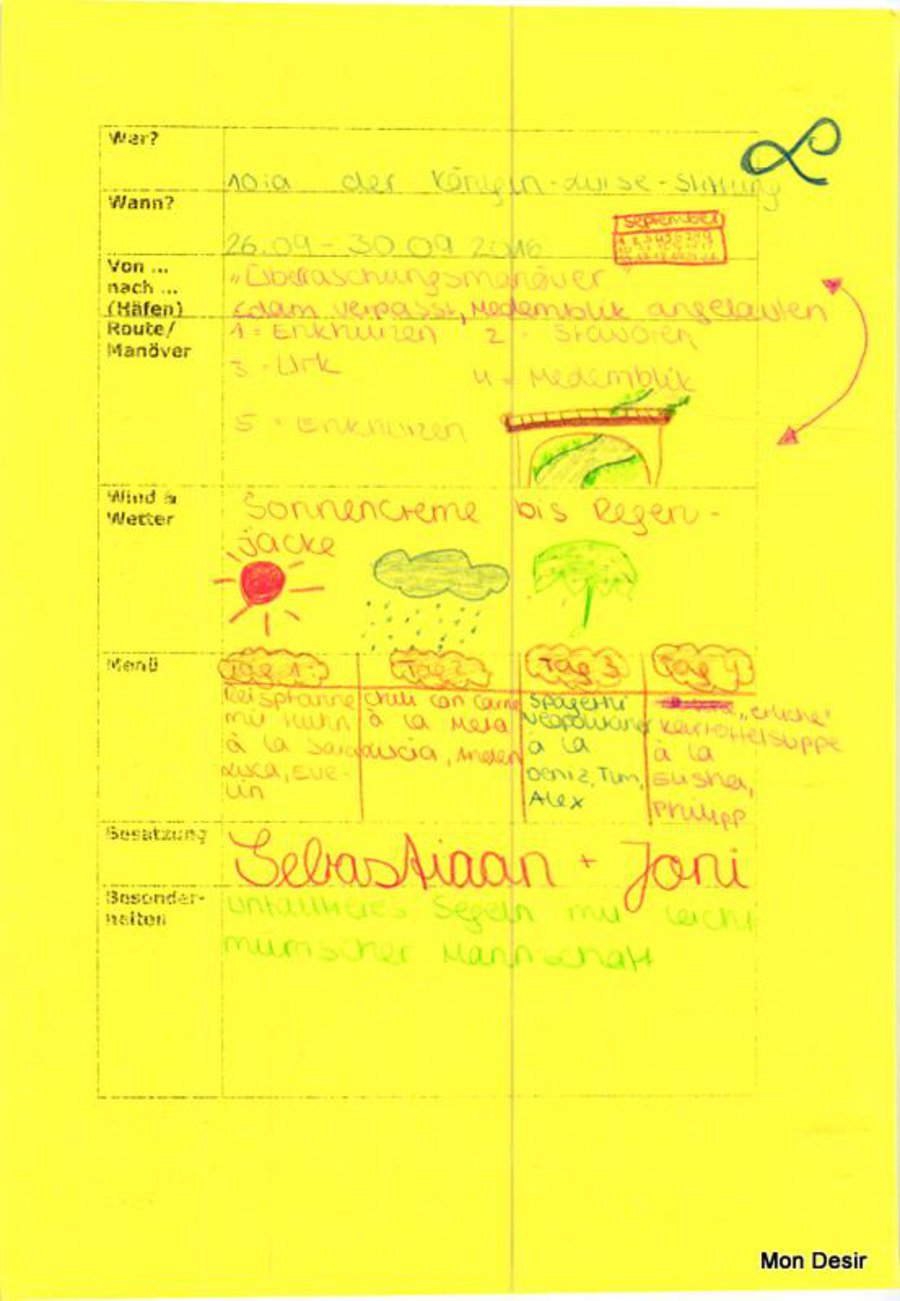 Wer?
10ia der Königin-Luise-Stiftung
Wann?
26.09 - 30.09 2016
September
Von ...
nach ...
(Häfen)
"Überaschungsmanöver
Edam verpasst, Medemblik angelaufen
Route/
Manöver
1 = Enkhuizen 2 = Stavoren
3 = Urk
4 = Medemblik
5 = Enkhuizen
Wind &
Wetter
Sonnencreme bis Regen-
jacke
Menü
Tag 1 Tag 2 Tag 3 Tag 4
Reispfanne
mit Huhn
à la Sara
Luca, Eve-
lin
Chili con Carne
à la Mera
Luscia,
Spagetti
Neapolitaner
à la
Deniz, Tim,
Alex
Kartoffelsuppe
à la
Philipp
Besatzung
Sebastiaan + Joni
Besonder-
heiten
unfallfreies Segeln mit leicht
mürrischer Mannschaft
Mon Desir